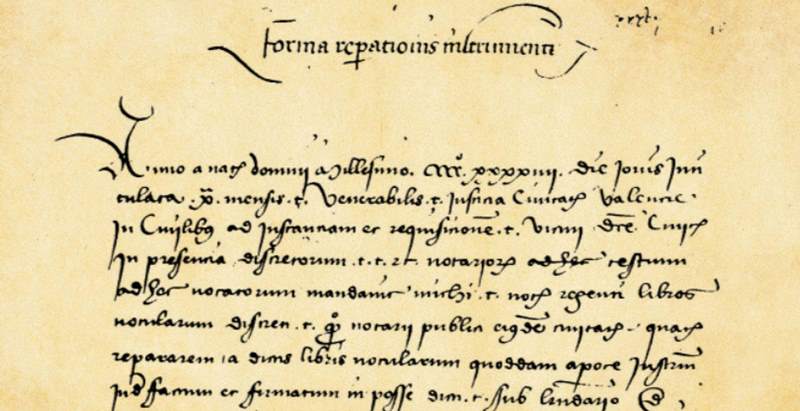 Forma reparationis instrumenti
Anno a nat domini Millesimo. CCCC xxxxiiij. die Jovis Inti
tulata .x. mensis .t. Venerabilis .t. Justicia Civitatis Valencie
In Civilibus ad Instanciam et requisicionem .t. vicini dce Civit
In presencia discretorum .t. t. et notariorum ad hec testium
ad hec vocatorum mandavit michi .t. not regenti libros
notularum discreti .t. notarii publici eiusdem civitatis quat
repararem a dictis libris notularum quoddam apoce Instrum
Inde factum et firmatum in posse dicti .t. sub